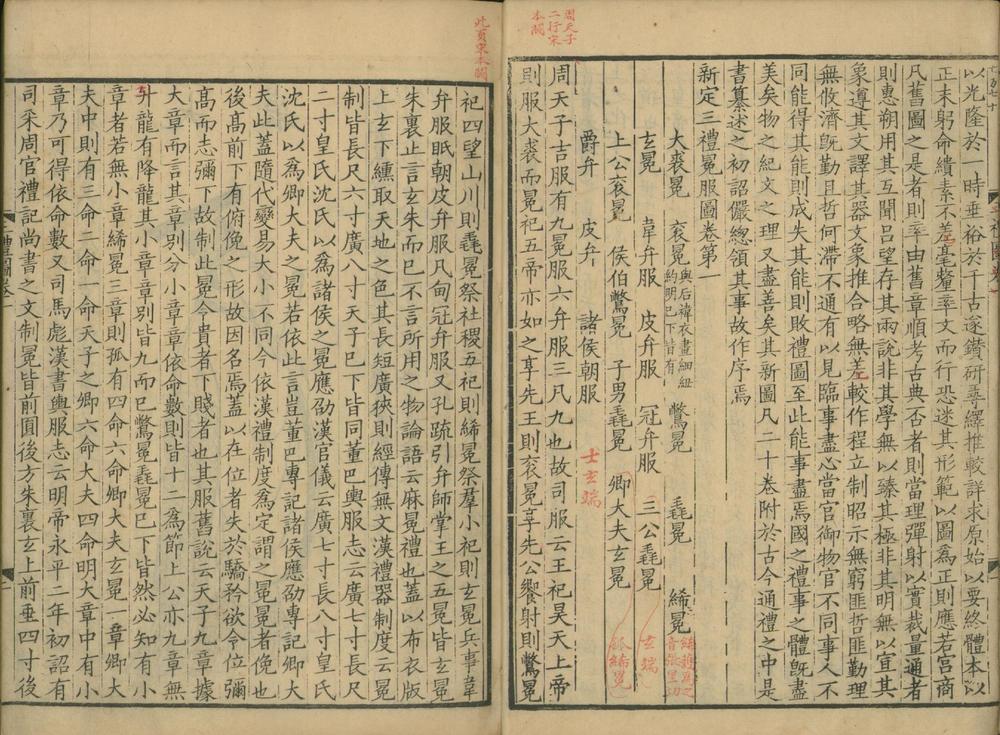 周天子
二行宋
本闕
以光隆於一時垂裕於千古遂鑽研尋繹推較詳求原始以要終體本以
正末躬命繢素不差毫釐率文而行恐迷其形範以圖為正則應若宮商
凡舊圖之是者則率由舊章順考古典否者則當理彈射以實裁量通者
則惠朔用其互聞呂望存其兩說非其學無以臻其極非其明無以宜其
象遵其文譯其器文象推合略無差較作程立制昭示無窮匪哲匪勤理
無攸濟既勤且哲何滯不通有以見臨事盡心當官御物官不同事人不
同能得其能則成失其能則敗禮圖至此能事盡焉國之禮事之體既盡
美矣物之紀文之理又盡善矣其新圖凡二十卷附於古今通禮之中是
書纂述之初詔儼總領其事故作序焉
新定三禮冕服圖卷第一
大裘冕 袞冕與后褘衣畫細紐約明巳下皆有 鷩冕 毳冕 絺冕
玄冕 韋弁服 皮弁服 冠弁服 三公毳冕 玄端
上公袞冕 侯伯鷩冕 子男毳冕 卿大夫玄冕 孤絺冕
爵弁 皮弁 諸侯朝服 士玄端
周天子吉服有九冕服六弁服三凡九也故司服云王祀昊天上帝
則服大裘而冕祀五帝亦如之享先王則袞冕享先公饗射則鷩冕
此頁宋本闕
祀四望山川則毳冕祭社稷五祀則絺冕祭羣小祀則玄冕兵事韋
弁服眂朝皮弁服凡甸冠弁服又孔疏引弁師掌王之五冕皆玄冕
朱裏止言玄朱而巳不言所用之物論語云麻冕禮也蓋以布衣版
上玄下纁取天地之色其長短廣狹則經傳無文漢禮器制度云冕
制皆長尺六寸廣八寸天子巳下皆同董巴輿服志云廣七寸長尺
二寸皇氏沈氏以為諸侯之冕應劭漢官儀云廣七寸長八寸皇氏
沈氏以為卿大夫之冕若依此言豈董巴專記諸侯應劭專記卿大
夫此蓋隨代變易大小不同今依漢禮制度為定謂之冕冕者俛也
後高前下有俯俛之形故因名焉蓋以在位者失於驕矜欲令位彌
高而志彌下故制此冕令貴者下賤者也其服舊說云天子九章據
大章而言其章別分小章章依命數則皆十二為節上公亦九章無
升龍有降龍其小章章別皆九而巳鷩冕毳冕巳下皆然必知有小
章者若無小章絺冕三章則孤有四命六命卿大夫玄冕一章卿大
夫中則有三命二命一命天子之卿六命大夫四命明大章中有小
章乃可得依命數又司馬彪漢書輿服志云明帝永平二年初詔有
司采周官禮記尚書之文制冕皆前圓後方朱裏玄上前垂四寸後